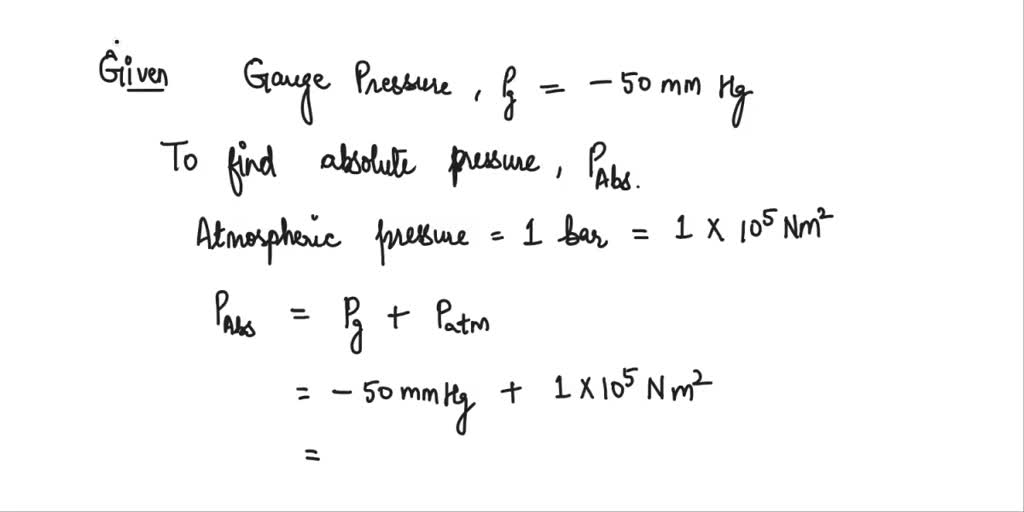 Given Gauge Pressure, Pg = - 50 mm Hg
To find absolute pressure, PAbs.
Atmospheric pressure = 1 bar = 1 X 10⁵ Nm²
PAbs = Pg + Patm
= - 50 mm Hg + 1 X 10⁵ Nm²
=